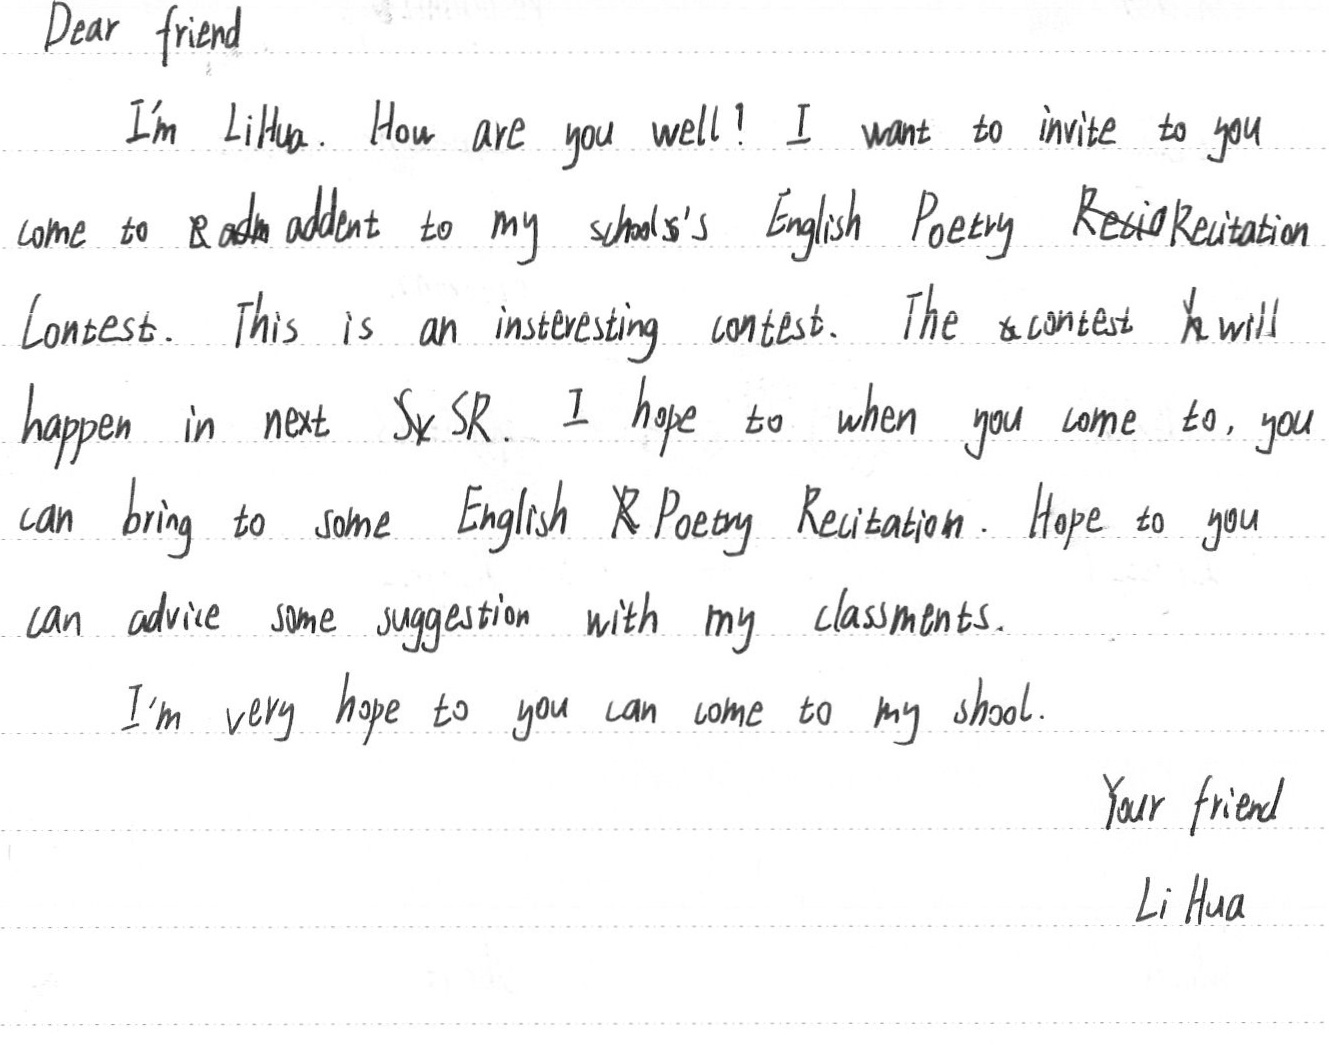 Dear friend
I'm LiHua. How are you well! I want to invite to you
come to addent to my schools's English Poetry Recitation
Contest. This is an insteresting contest. The contest will
happen in next SR. I hope to when you come to, you
can bring to some English Poetry Recitation. Hope to you
can advice some suggestion with my classments.
I'm very hope to you can come to my shool.
Your friend
Li Hua